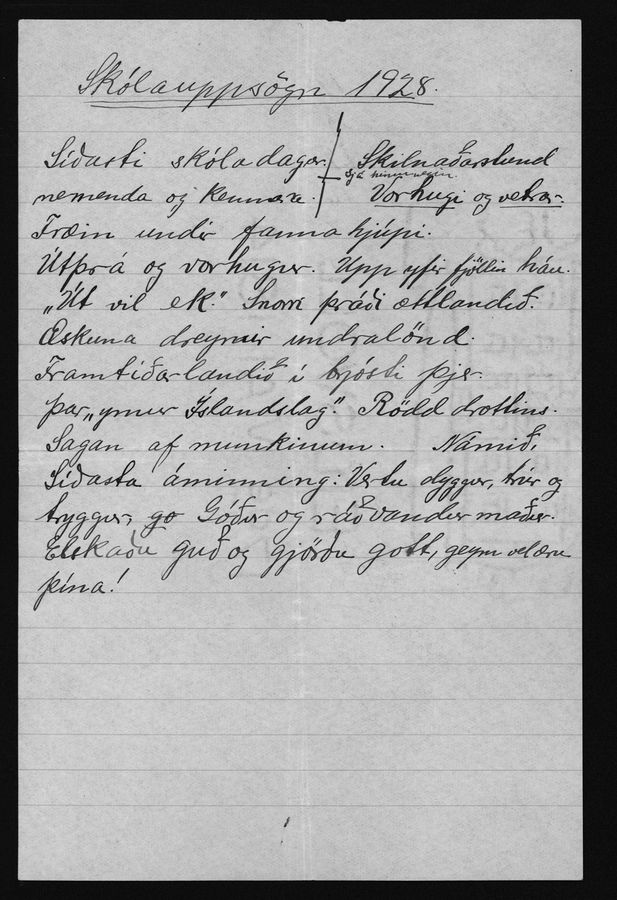 Skólauppsögn 1928.
Síðasti skóladagur. Skilnaðarstund
Sjá hinumegin.
nemenda og kennara. Vorhugi og vetrar-
Fræin undir fannahjúpi.
Útþrá og vorhugur. Upp yfir fjöllin háu.
„Út vil ek." Snorri þráði ættlandið.
Æskuna dreymir undralönd.
Framtíðarlandið í brjósti þjer.
Þar „ymur Íslandslag". Rödd drottins.
Sagan af munkinum. Námið.
Síðasta áminning: Vertu dyggur, trúr og
tryggur, go Góður og ráðvandur maður.
Elskaðu guð og gjörðu gott, geym vel æru
þína!